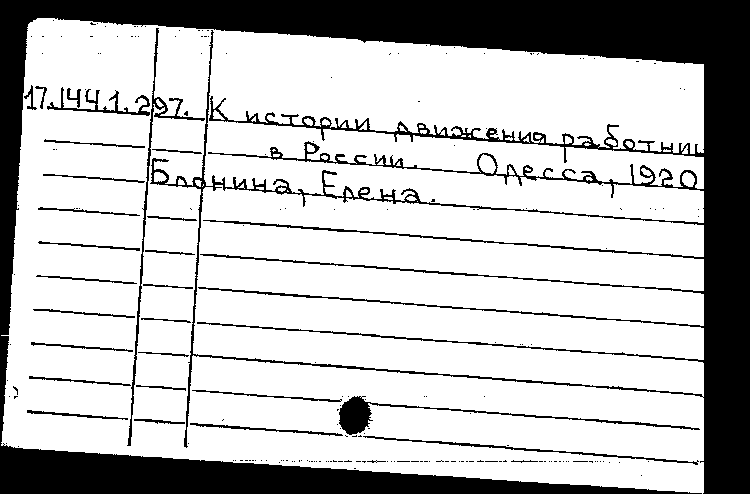 17.144.1.297. К истории движения работниц
в России. Одесса, 1920
Блонина, Елена.